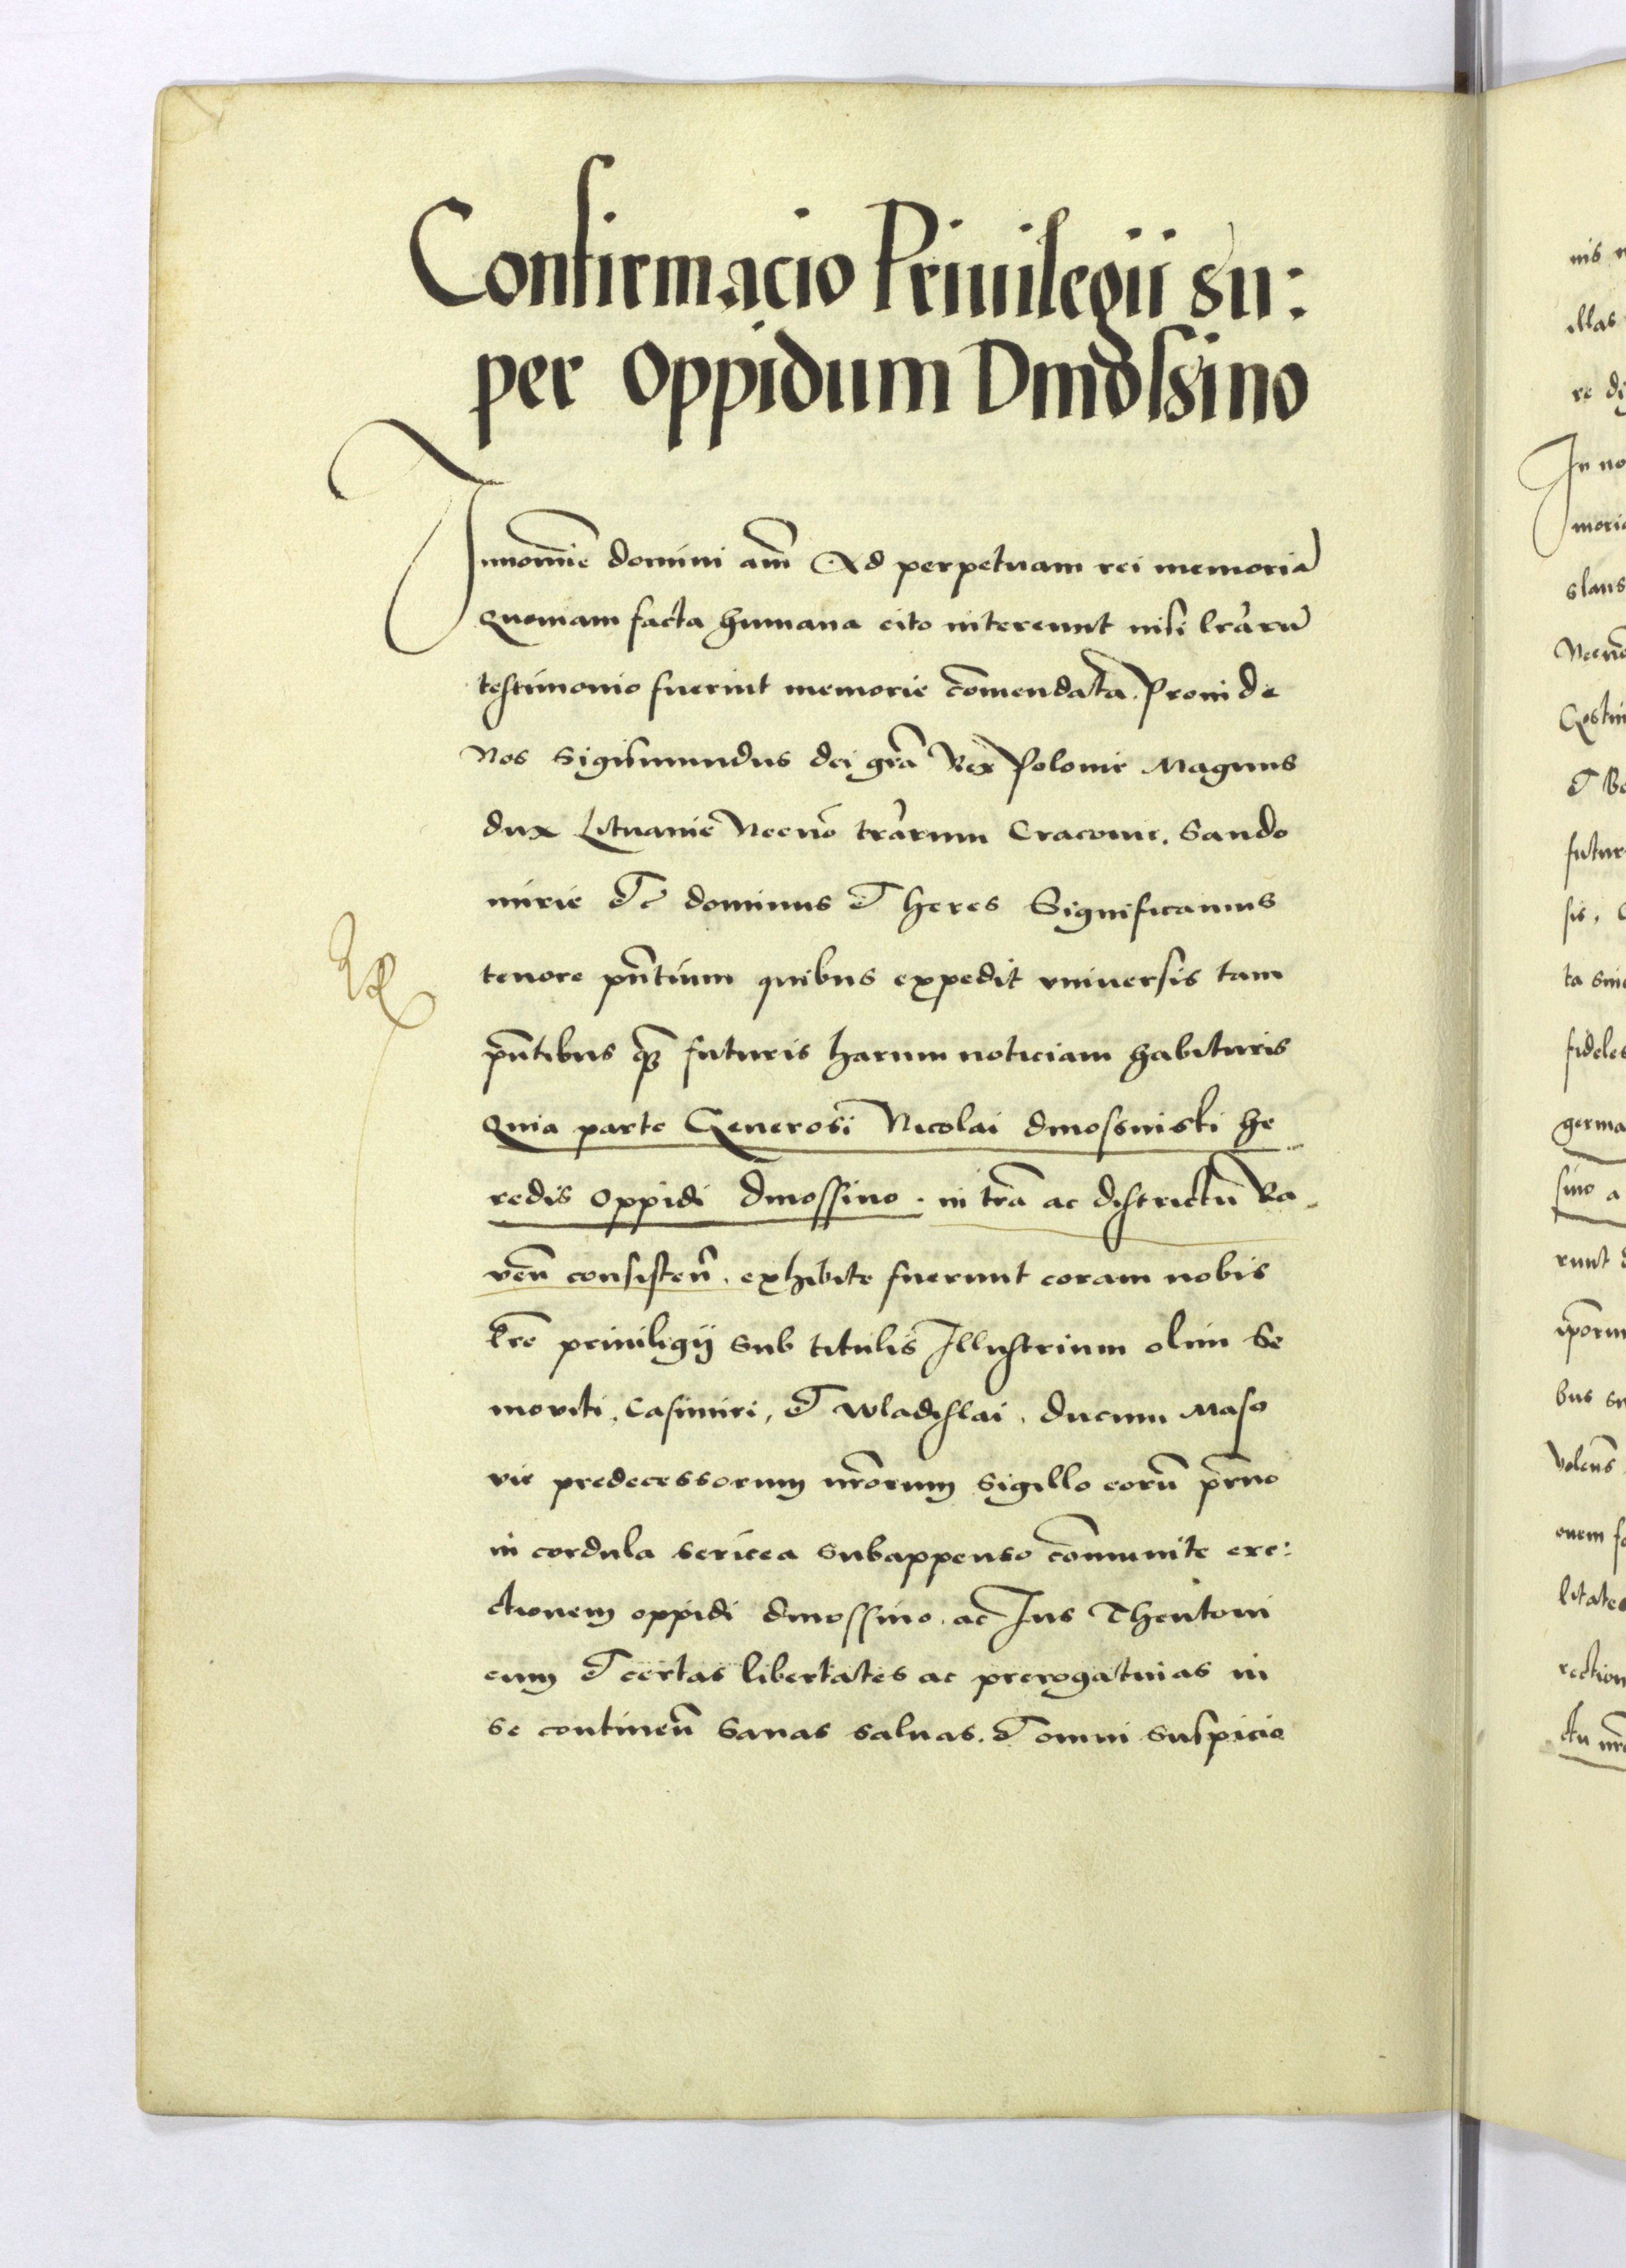 Confirmacio Priuilegii su:
per Oppidum Dmossino
Innomie domini am̄ Ad perpetuam rei memoriā
Quoniam facta humana cito intereunt nisi lrārū
testimonio fuerint memorie com̄endata. Proinde
Nos Sigismundus dei grā Rex Polonie Magnus
dux Lituanie Necnō trārum Cracouie. Sando
mirie Etc dominus Et heres Significamus
tenore pn̄tium quibus expedit vniuersis tam
pn̄tibus qꝫ futuris harum noticiam habituris
Quia parte Generosi Nicolai dmossinski he
redis oppidi dmossino. in trā ac districtū Ra
ven̄ consisten̄. exhibite fuerunt coram nobis
lrē priuilegij sub titulis Illustrium olim Se
moviti, Casimiri, Et Wladislai, ducum Maso
vie predecessorum nrōrum sigillo eorū
in cordula sericea subappenso com̄unite ere:
ctionem oppidi dmossino. ac Jus Theutoni
cum Et certas libertates ac prerogatiuas in
se continen̄ Sanas saluas. Et omni suspicio
nis
illas
re
In no
moria
slaus
Necnō
Et
futur
sis,
ta
fideles
germa
sino a
runt
ip̄orum
bus
volens
onem
litates
rection